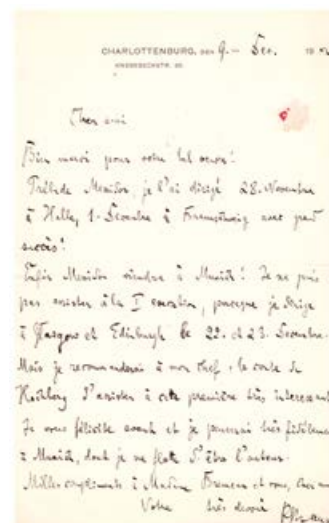 CHARLOTTENBURG, DEN 9. Dec. 19
KNESEBECKSTR. 30
Cher ami
Bien merci pour votre bel
je l'ai dirigé 28. Novembre
à Halle, 1. Decembre à avec grand
succès!
Enfin à Munich! Je ne puis
pas assister à la I execution, parceque je dirige
à Glasgow et Edinburgh le 22. et 23. Decembre.
Mais je recommanderai à mon chef, le comte de
Hochberg d'assister à cette première très interessant
Je vous félicite avant et je très
à Munich, dont je me flatte d'être l'auteur.
Milles compliments à Madame et vous, cher ami
Votre très devoué